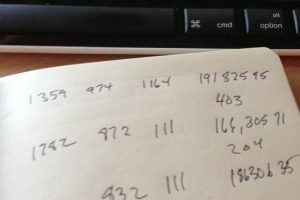 ⌘ cmd
alt
option
1359 974 1164 19182595
403
1782 872 111 166,30571
204
832 111 18630635